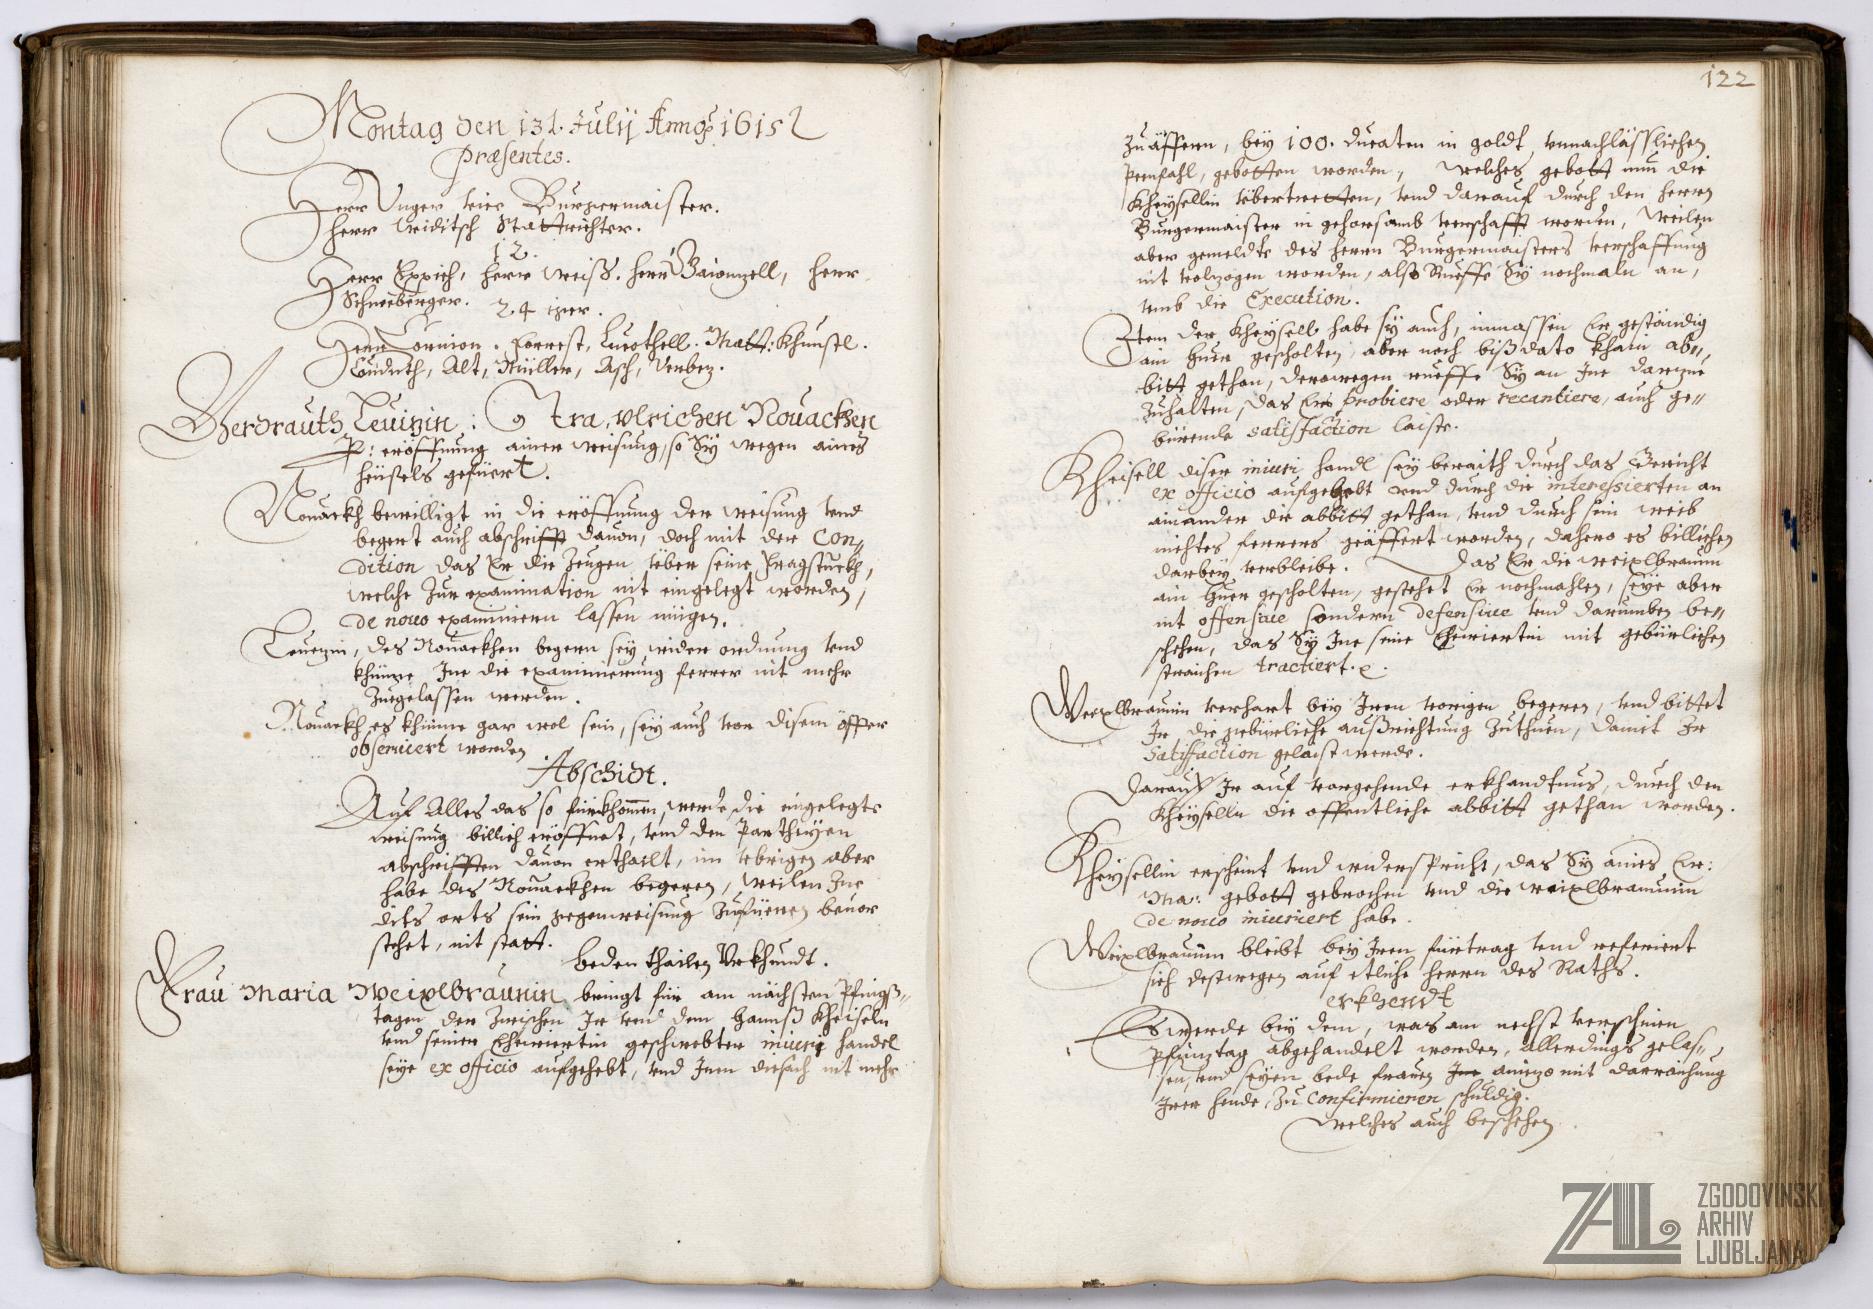 Montag den 13t. Julij Anno 1615
Præsentes.
Herr Unger vice Burgermaister.
Herr Widitsch Stattrichter.
12.
Herr Eppich, herr Weiß. herr herr
Schneeberger. 24 iger.
Herr Cornion. Forrest, Matt: Khunstl.
Alt, Müller, Asch, Verbez.
Gerdrauth Leuizin: Ctra, Ulrichen Nouackhen
P: eröffnung ainer weisung, so Sÿ wegen aines
heüsels gefüert.
Nouackh bewilligt in die eröffnung der weisung vnd
begert auch abschrifft dauon, doch mit der Con,,
dition das Er die Zeugen vber seine Fragstuckh,
welche Zur examination nit eingelegt worden,
de nouo examinirn lassen mügen.
Leuizin, des Nouackhen begern seÿ wider ordnung vnd
khünne Jne die examinierung ferrer nit mehr
Zuegelassen werden.
Nouackh es khünne gar wol sein, seÿ auch vor disem öffter
obseruiert worden
Abschidt.
Auf Alles das so fürkhomen, werde die eingelegte
weisung billich eröffnet, vnd den Partheÿen
abschrifften dauon erthailt, im vbrigen aber
habe des Nouackhen begeren, weilen Jne
dits orts sein gegenweisung Zufüeren beuor
stehet, nit statt.
beden thailen Vrkhundt.
Frau Maria Weixlbraunin bringt für am nächsten Pfingst,,
tagen der Zwischen Jr vnd dem Hannß Kheiseln
vnd seiner Ehewiertin geschwebter iniuri handel
seÿe ex officio aufgehebt, vnd Jnen diesach nit mehr
122
Zuäffern, beÿ 100. ducaten in goldt vnnachläßlichen
Peenfahl, gebotten worden, welches gebott nun die
Kheÿsellin vbertretten, vnd darauf durch den herrn
Burgermaister in gehorsamb verschafft worden, weilen
aber gemeldte des herrn Burgermaisters verschaffung
nit volzogen worden, alß Rueffe Sÿ nochmaln an,
vmb die Execution.
Jtem der Kheÿsell habe sÿ auch, inmassen Er geständig
ain Huer gescholten, aber noch biß dato khain ab,,
bitt gethan, derowegen rueffe Sÿ an Jne darzue
Zuhalten, das Ers probiere oder recantiere, auch ge,,
bürende satisfaction laiste.
Kheisell diser iniuri handl seÿ beraith durch das Gericht
ex officio aufgehebt vnd durch die interessierten an
ainander die abbitt gethan, vnd durch sein weib
nichtes ferrers geäffert worden, dahero es billichen
darbeÿ verbleibe. Das Er die Weixlbraunin
ain Huer gescholten, gestehet Er nochmahlen, seÿe aber
nit offensiue sondern defensiue vnd darumben be,,
schehen, das Sÿ Jne seine Ehewiertin mit gebürlichen
straichen tractiert.
Weixlbraunin verhart beÿ Jren vorigen begeren, vnd bittet
Jr die gebürliche außrichtung Zuthuen, damit Jr
Satisfaction gelaist werde.
Darauf Jr auf vorgehende erkhandtnus, durch den
Kheÿselln die offentliche abbitt gethan worden.
Kheÿsellin erscheint vnd widerspricht, das Sÿ aines Er:
Ma: gebott gebrochen vnd die Weixlbraunin
de nouo iniuriert habe.
Weixlbraunin bleibt beÿ Jren fürtrag vnd referiert
sich destwegen auf etliche herrn des Raths.
erkhendt
Es werde beÿ dem, was am nechst verschinen
Pfinztag abgehandelt worden, allerdings gelas,,
sen, vnd seÿen bede frauen anezo mit darraichung
Jrer hende, Zu confirmieren schuldig.
Welches auch beschehen
ZAL
ZGODOVINSKI
ARHIV
LJUBLJANA